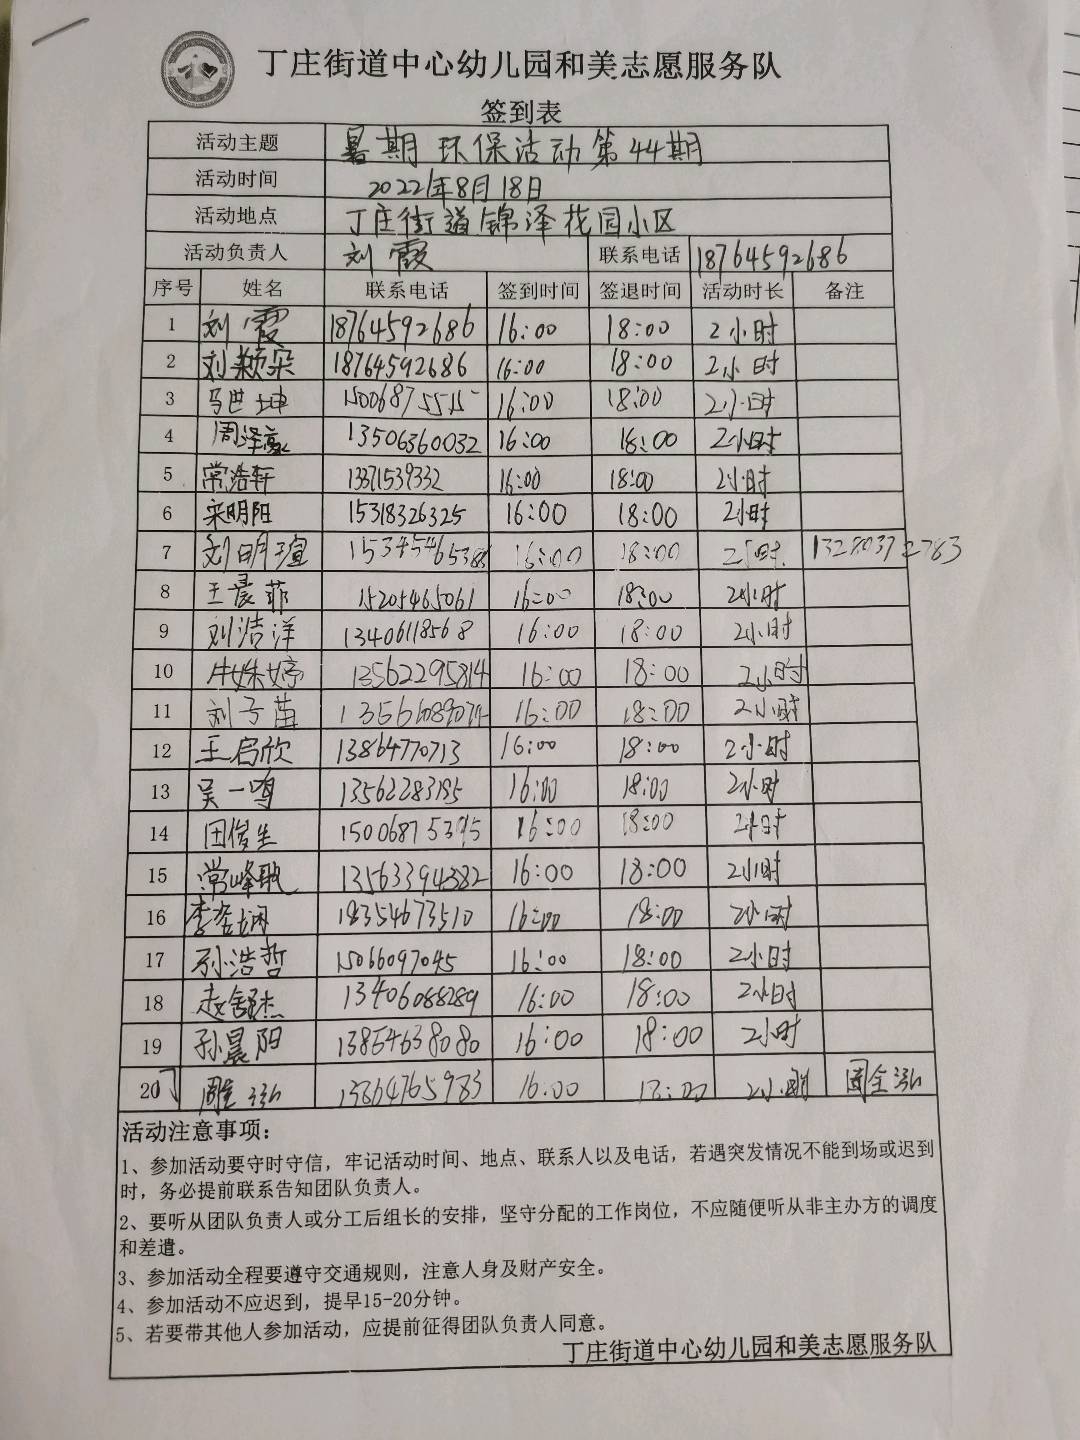 丁庄街道中心幼儿园和美志愿服务队
签到表
活动主题 暑期环保活动第44期
活动时间 2022年8月18日
活动地点 丁庄街道锦泽花园小区
活动负责人 刘霞 联系电话 18764592686
序号 姓名 联系电话 签到时间 签退时间 活动时长 备注
1 刘霞 18764592686 16:00 18:00 2小时
2 刘颖朵 18764592686 16:00 18:00 2小时
3 马世坤 15006875515 16:00 18:00 2小时
4 周泽豪 13506360032 16:00 18:00 2小时
5 常浩轩 13371539332 16:00 18:00 2小时
6 宋明阳 15318326325 16:00 18:00 2小时
7 刘明瑄 16:00 18:00 2小时
8 王晨菲 15205465061 16:00 18:00 2小时
9 刘洁洋 13406118568 16:00 18:00 2小时
10 牛姝婷 13562295814 16:00 18:00 2小时
11 刘子苗 16:00 18:00 2小时
12 王启欣 13864770713 16:00 18:00 2小时
13 吴一鸣 13562283195 16:00 18:00 2小时
14 田俊生 15006875395 16:00 18:00 2小时
15 常峰 13563394382 16:00 18:00 2小时
16 李 18354673510 16:00 18:00 2小时
17 孙浩哲 15066097045 16:00 18:00 2小时
18 赵舒杰 13406088289 16:00 18:00 2小时
19 孙晨阳 13854638080 16:00 18:00 2小时
20 周 16:00 18:00 2小时 周全
活动注意事项：
1、参加活动要守时守信，牢记活动时间、地点、联系人以及电话，若遇突发情况不能到场或迟到
时，务必提前联系告知团队负责人。
2、要听从团队负责人或分工后组长的安排，坚守分配的工作岗位，不应随便听从非主办方的调度
和差遣。
3、参加活动全程要遵守交通规则，注意人身及财产安全。
4、参加活动不应迟到，提早15-20分钟。
5、若要带其他人参加活动，应提前征得团队负责人同意。
丁庄街道中心幼儿园和美志愿服务队